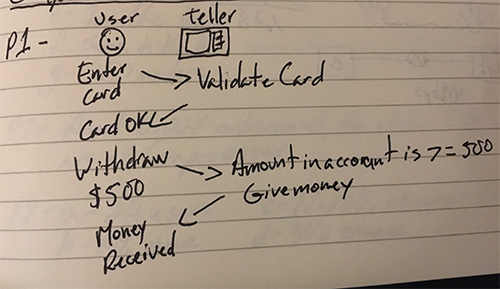 user teller
P1 -
Enter → Validate Card
Card
Card OK ←
Withdraw → Amount in account is >= 500
$500 Give money
Money ←
Received